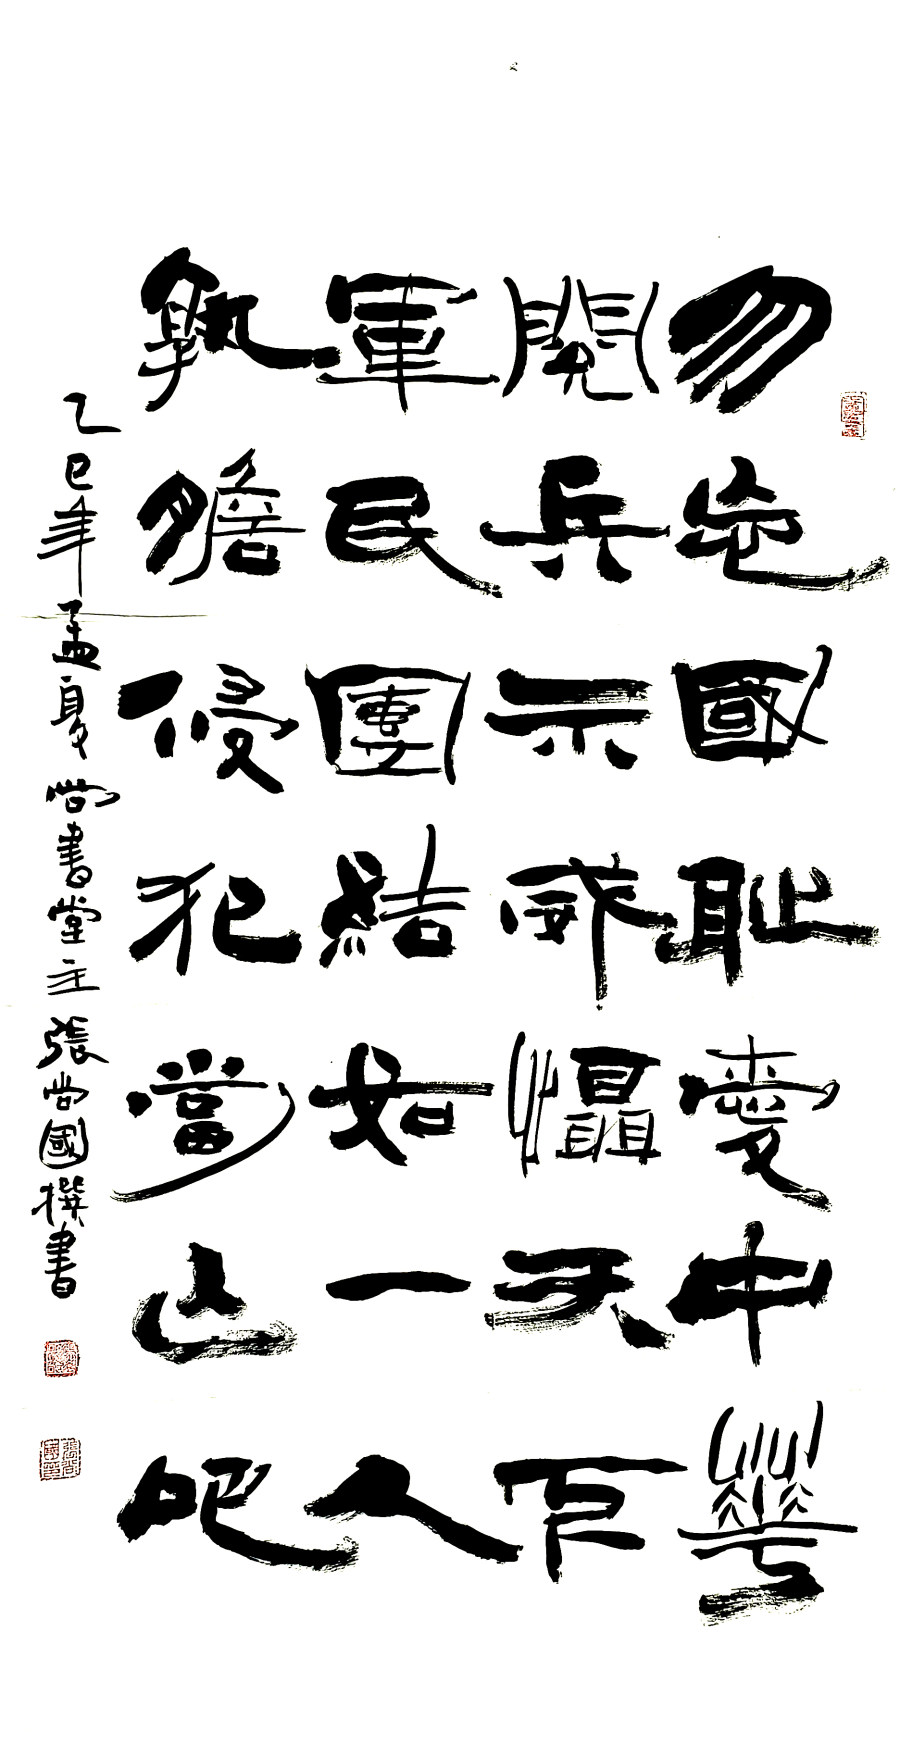 勿忘國恥愛中華
閱兵示威懾天下
軍民團結如一人
孰膽侵犯當山吧
乙巳年孟夏尚書堂主張尚國撰書